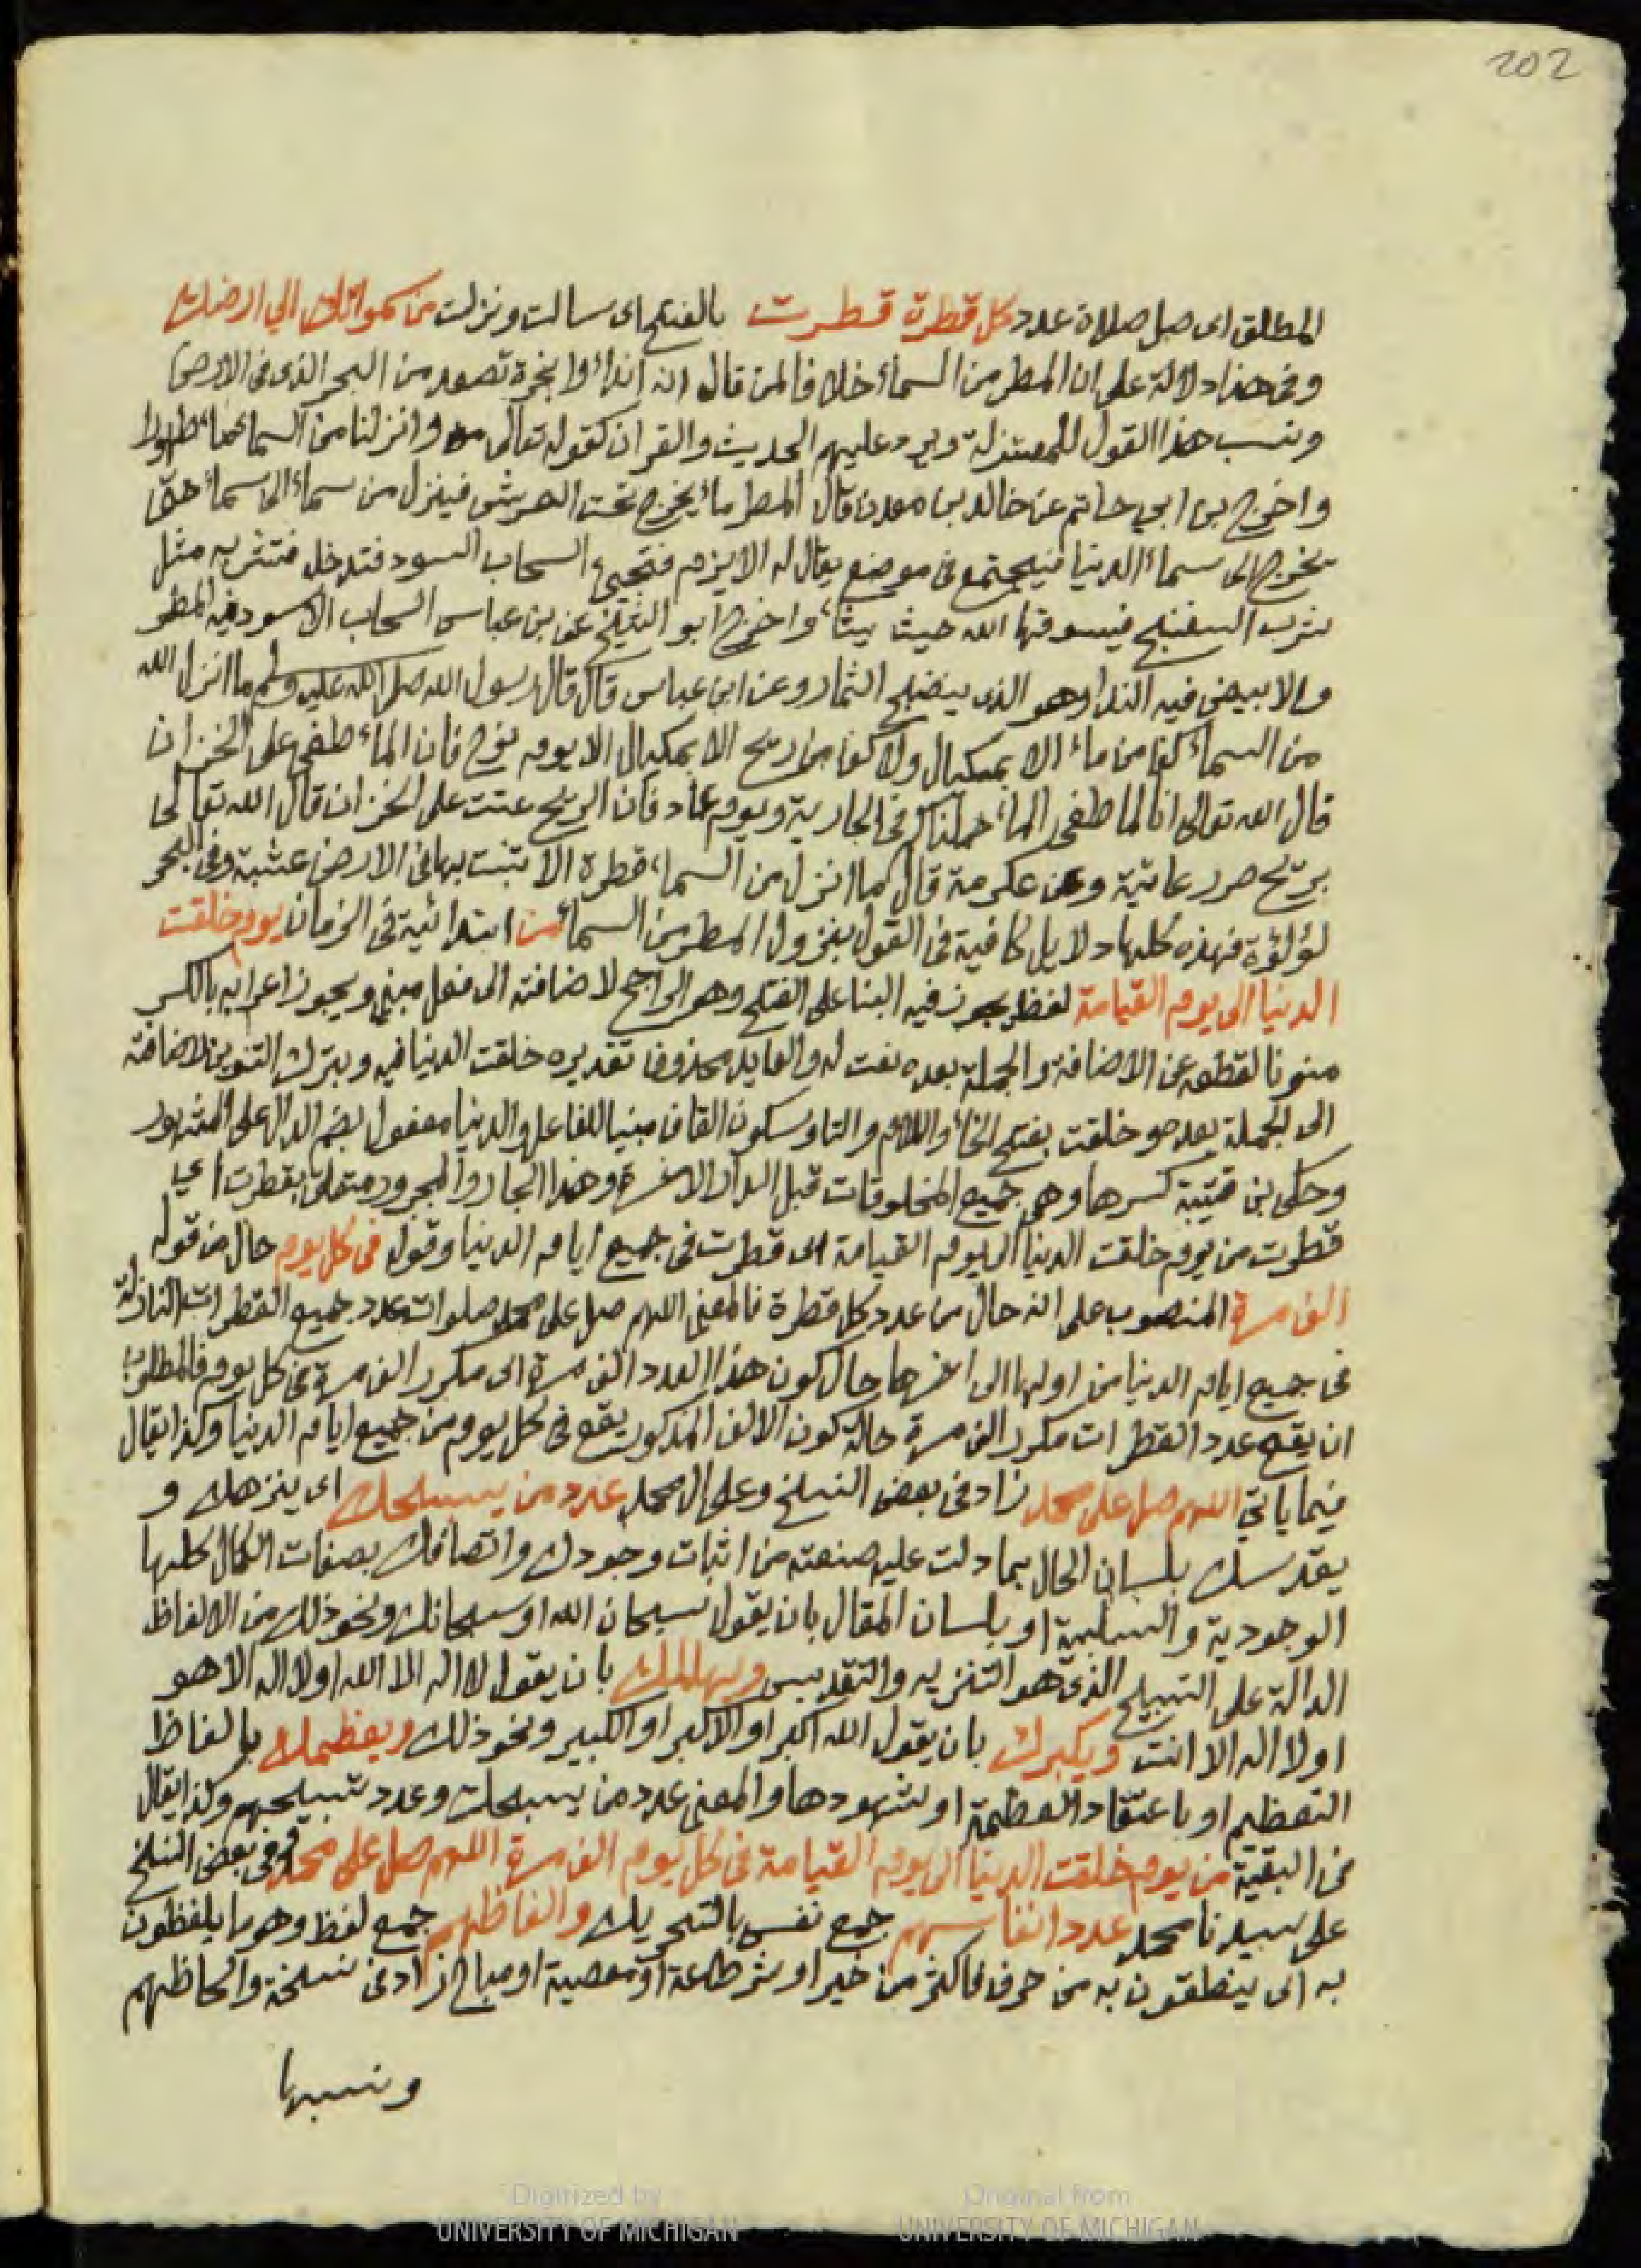 202
المطلق اى صل صلاة عدد كل قطرة قطرت بالفتح اى سالت ونزلت من سمواتك الي ارضك
وفى هذا دلالة على ان المطر من السمآء خلافا لمن قال انه انداء وابخرة تصعد من البحر الذى فى الارض
ونسب هذا القول للمعتزلة ويرد عليهم الحديث والقران كقوله تعالى وانزلنا من السمآء مآء طهورا
واخرج بن ابي حاتم عن خالد بن معدن قال المطر مآء يخرج تحت العرش فينزل من سمآء الى سمآء حتى
يخرج الى سمآء الدنيا فيجتمع فى موضع يقال له الايزم فتجيئ السحاب السود فتدخل فتشربه مثل
شرب السفنج فيسوقها الله حيث يشآء واخرج ابو الشيخ عن بن عباس السحاب الاسود فيه المطر
والابيض فيه الندا وهو الذى ينضج الثمار وعن ابن عباس قال قال رسول الله صلى الله عليه وسلم ما انزل الله
من السمآء كفا من مآء الا بمكيال ولا كفا من ريح الا بمكيال الا يوم نوح فان المآء طغى على الخزان
قال الله تعالى انا لما طغى المآء حملناكم فى الجارية ويوم عاد فان الريح عتت على الخزان قال الله تعالى
بريح صرر عاتية وعن عكرمة قال ما انزل من السمآء قطرة الا تبنت بها فى الارض عشبة وفى البحر
لؤلؤة فهذه كلها دلايل كافية فى القول بنزول المطر من السمآء من ابتدائية فى الزمان يوم خلقت
الدنيا الى يوم القيامة لفظ يجوز فيه البنا على الفتح وهو الراجح لاضافته الى فعل مبنى ويجوز اعرابه بالكسر
منونا لقطعه عن الاضافة والجملة بعده نعت له والعايد محذوف تقديره خلقت الدنيا فيه وبترك التنوين لاضافة
الى الجملة بعده وخلقت بفتح الخآء واللام والتا وسكون القاف مبنيا للفاعل والدنيا مفعول بضم الدال على المشهور
وحكى بن قتيبة كسرها وهى جميع المخلوقات قبل الدار الاخرة وهذا الجار والمجرور متعلق بقطرت اى
قطرت من يوم خلقت الدنيا الى يوم القيامة اى قطرت فى جميع ايام الدنيا وقول فى كل يوم حال من قوله
الف مرة المنصوب على انه حال من عدد كل قطرة فالمعنى اللهم صل على محمد صلوات عدد جميع القطرات النازلة
فى جميع ايام الدنيا من اولها الى اخرها حال كون هذا العدد الف مرة اى مكرر الف مرة فى كل يوم فالمطلوب
ان يقع عدد القطرات مكرر الف مرة حالة كون الالف المذكور يقع فى كل يوم من جميع ايام الدنيا وكذا يقال
فيما ياتي اللهم صل على محمد زاد فى بعض النسخ وعلى ال محمد عدد من يسبحك اى ينزهك و
يقدسك بلسان الحال بما دلت عليه صنعته من اثبات وجودك واتصافك بصفات الكمال كلها
الوجودية والسلبية او بلسان المقال بان يقول سبحان الله او سبحانك ونحو ذلك من الالفاظ
الدالة على التسبيح الذى هو التنزيه والتقديس ويهللك بان يقول لا اله الا الله او لا اله الا هو
او لا اله الا انت ويكبرك بان يقول الله اكبر او الاكبر او الكبير ونحو ذلك ويعظمك بالفاظ
التعظيم او باعتقاد العظمة او شهودها والمعنى عدد من يسبحك وعدد تسبيحهم وكذا يقال
فى البقية من يوم خلقت الدنيا الى يوم القيامة فى كل يوم الف مرة اللهم صل على محمد وفى بعض النسخ
على سيدنا محمد عدد انفاسهم جمع نفس بالتحريك والفاظهم جمع لفظ وهو ما يلفظون
به اى ينطقون به من حرف فاكثر من خير او شر طاعة او معصية او مباح زاد فى نسخة والحاظهم
ونسبها
Digitized by
UNIVERSITY OF MICHIGAN
Original from
UNIVERSITY OF MICHIGAN